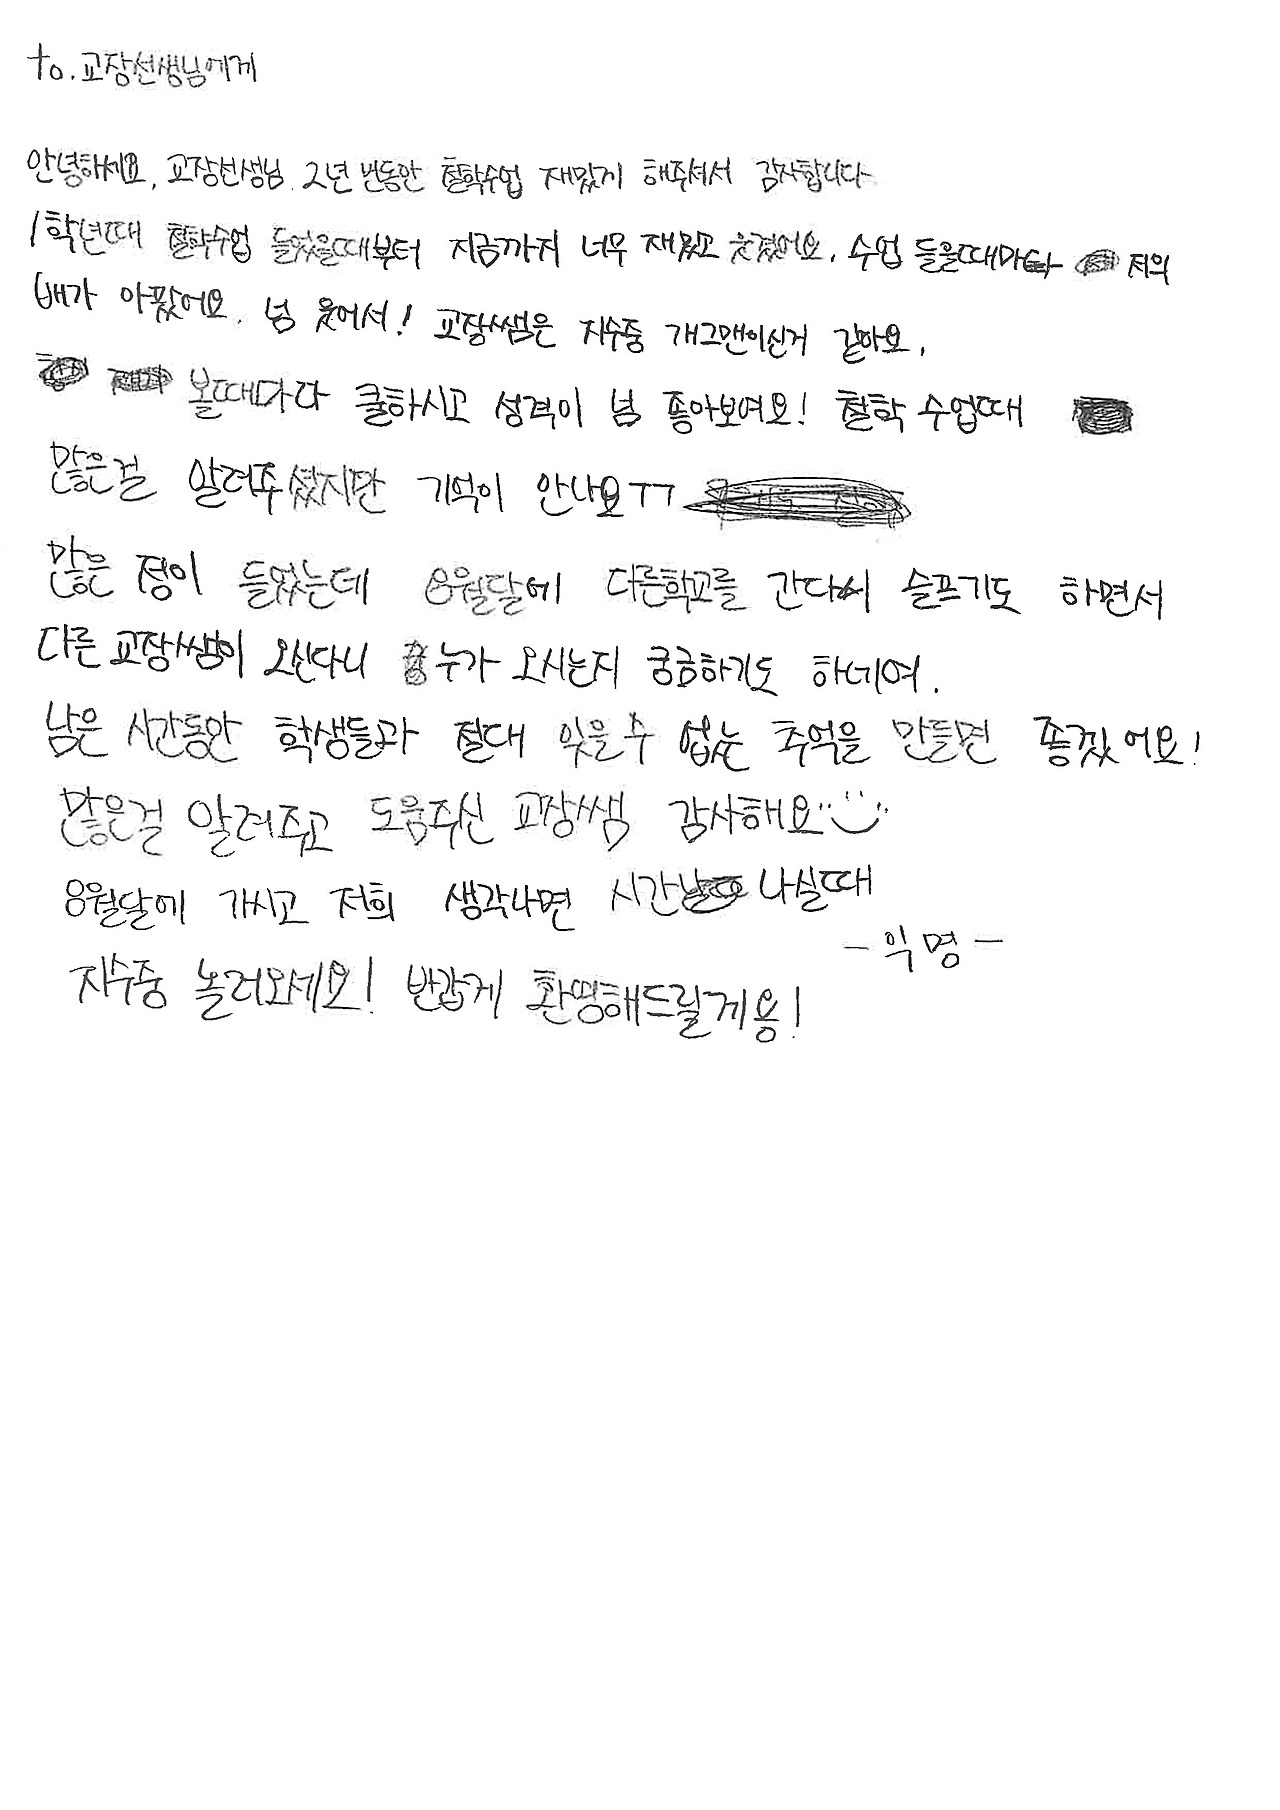 to.교장선생님에게
안녕하세요, 교장선생님 2년 번동안 철학수업 재밌게 해주셔서 감사합니다
1학년때 철학수업 들었을때부터 지금까지 너무 재밌고 웃겼어요. 수업 들을때마다 저의
배가 아팠어요. 넘 웃어서! 교장쌤은 지수중 개그맨이신거 같아요.
볼때마다 쿨하시고 성격이 넘 좋아보여요! 철학 수업때
많은걸 알려주셨지만 기억이 안나요ㅜㅜ
많은 정이 들었는데 8월달에 다른학교를 간다씨 슬프기도 하면서
다른 교장쌤이 오신다니 누가 오시는지 궁금하기도 하네여.
남은 시간동안 학생들과 절대 잊을수 없는 추억을 만들면 좋겠어요!
많은걸 알려주고 도움주신 교장쌤 감사해요
8월달에 가시고 저희 생각나면 시간 나실때
지수중 놀러오세요! 반갑게 환영해드릴게용!
- 익명 -